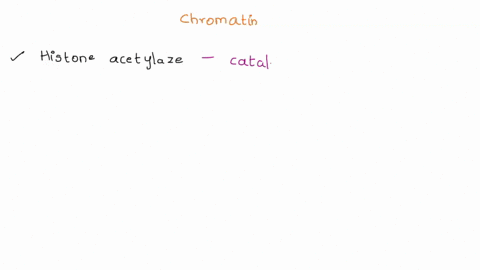 Chromatin
✓ Histone acetylaze - catal